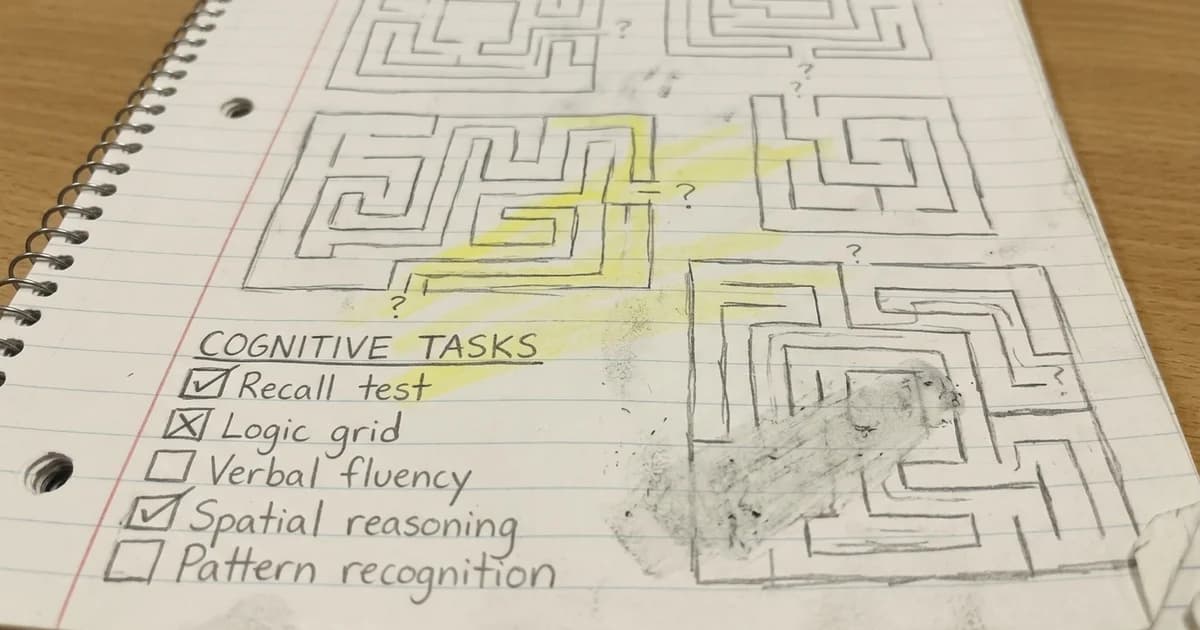 ?
?
?
?
?
?
?
COGNITIVE TASKS
Recall test
Logic grid
Verbal fluency
Spatial reasoning
Pattern recognition